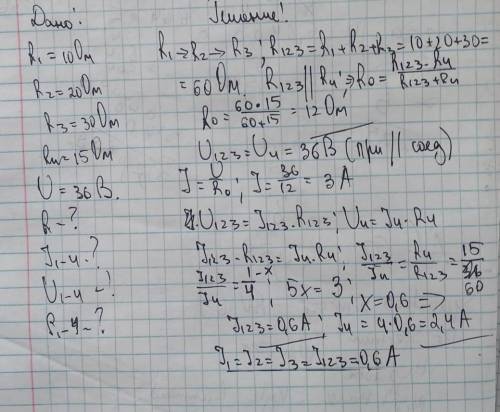 Дано:
Решение!
R₁ = 10 Ом
R₂ = 20 Ом
R₃ = 30 Ом
R₄ = 15 Ом
U = 36 В.
R – ?
I₁₋₄ – ?
U₁₋₄ – ?
P₁₋₄ – ?
R₁ → R₂ → R₃; R₁₂₃ = R₁ + R₂ + R₃ = 10 + 20 + 30 =
= 60 Ом. R₁₂₃ || R₄ ⇒ R₀ = R₁₂₃ · R₄ / R₁₂₃ + R₄
R₀ = 60 · 15 / 60 + 15 = 12 Ом,
U₁₂₃ = U₄ = 36 В (при || соед)
I = U / R₀; I = 36 / 12 = 3 А
U₁₂₃ = I₁₂₃ · R₁₂₃; U₄ = I₄ · R₄
I₁₂₃ · R₁₂₃ = I₄ · R₄; I₁₂₃ / I₄ = R₄ / R₁₂₃ = 15 / 60
I₁₂₃ / I₄ = 1 – x / 4; 5x = 3; x = 0,6 ⇒
I₁₂₃ = 0,6 А; I₄ = 4 · 0,6 = 2,4 А
I₁ = I₂ = I₃ = I₁₂₃ = 0,6 А